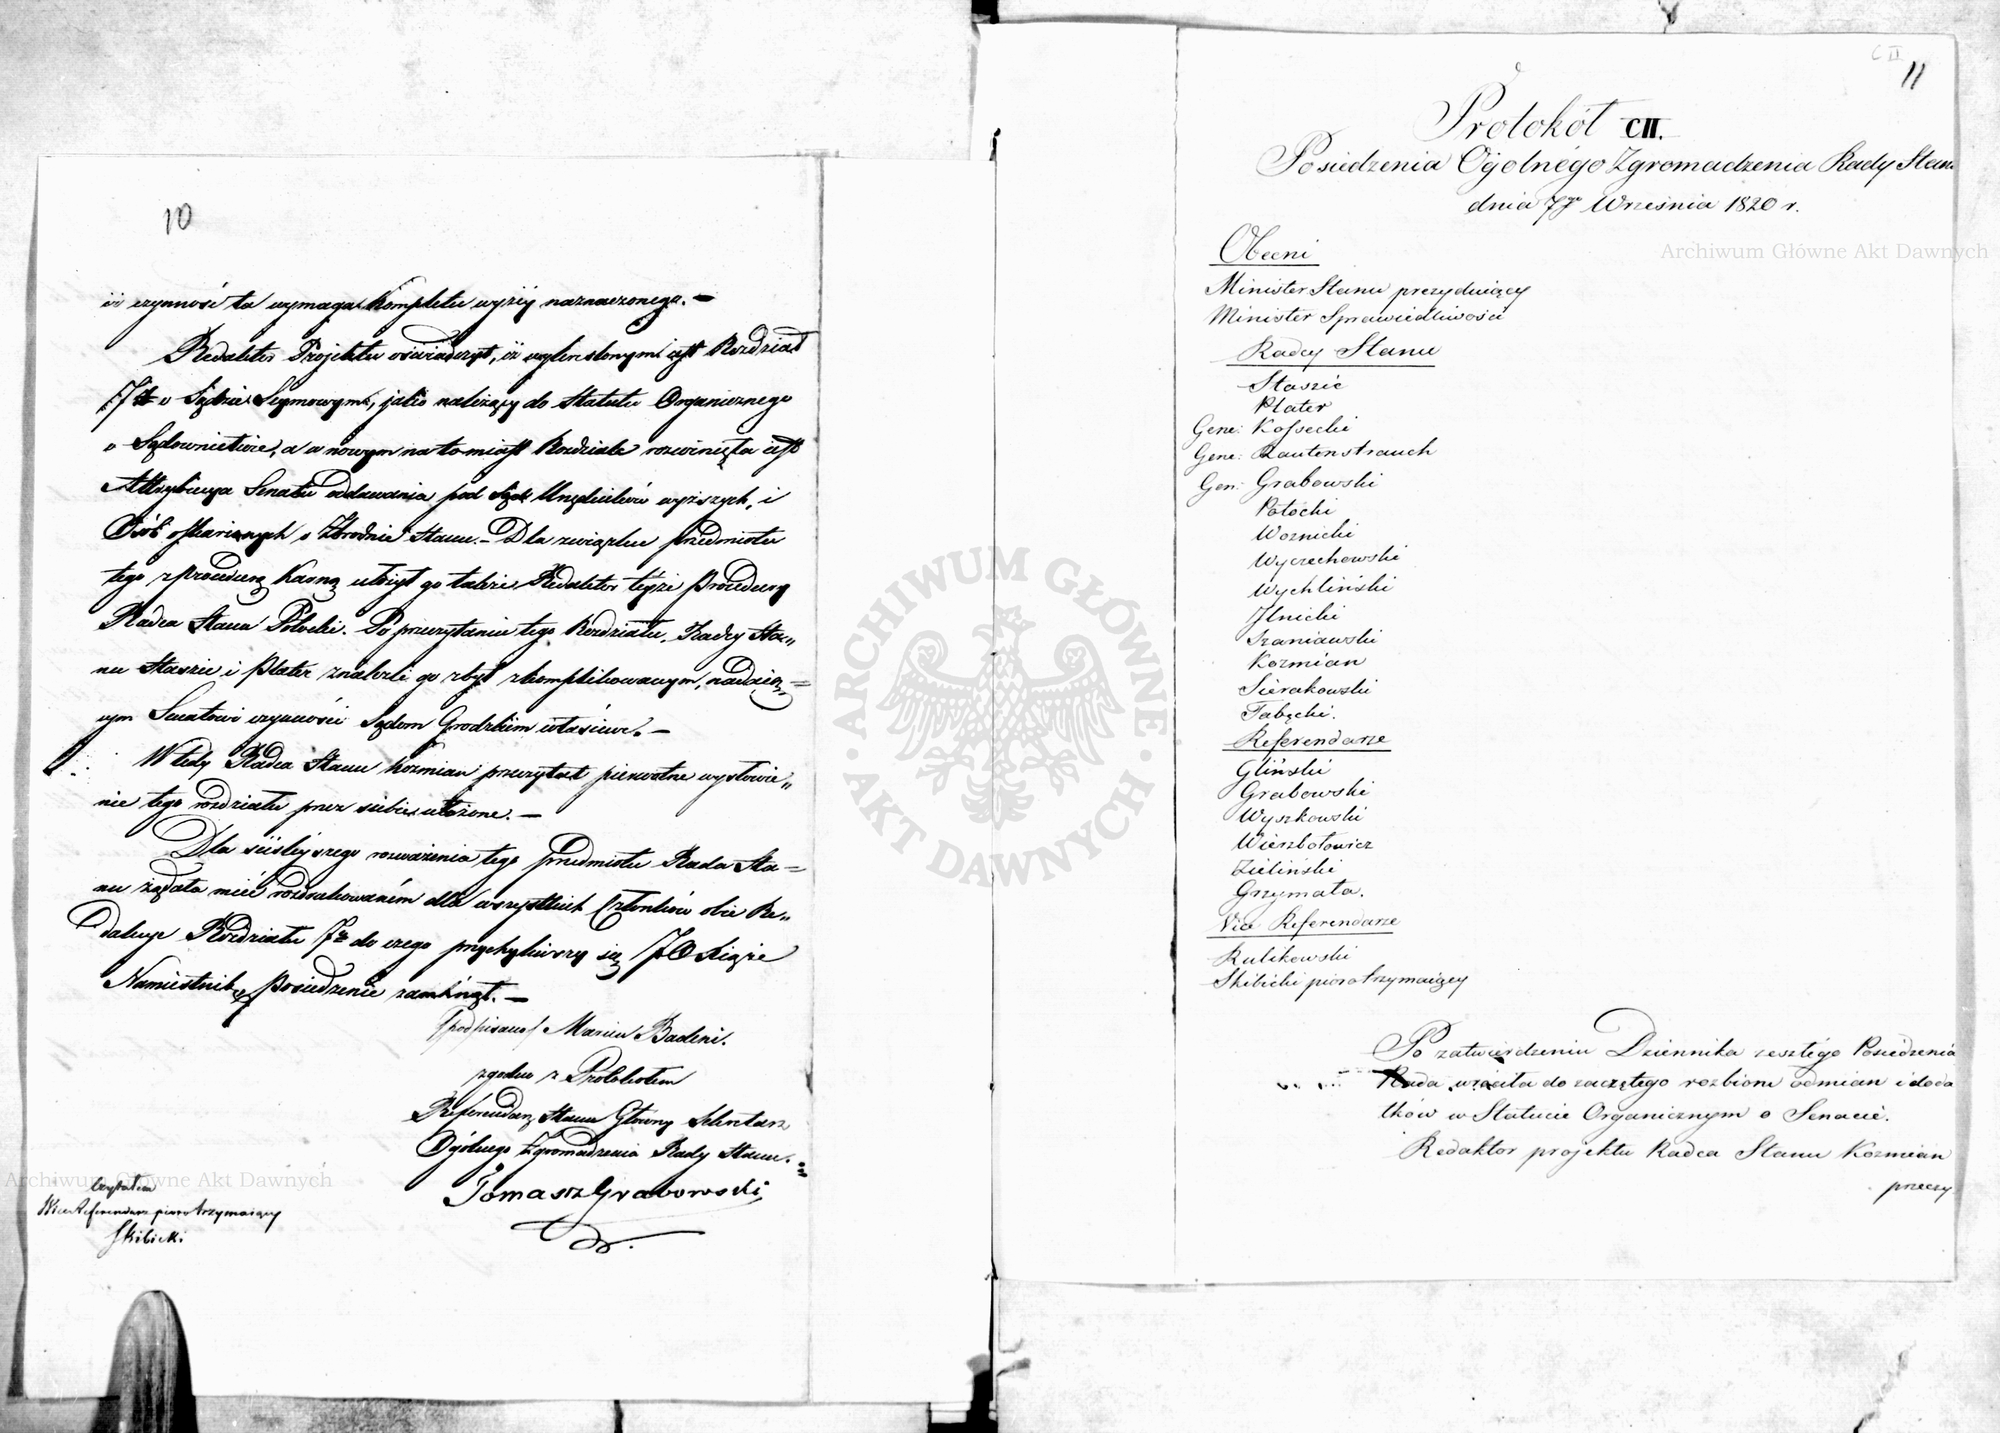 10
iż czynność ta wymaga Kompletu wyżey naznaczonego. —
Redaktor Projektu oświadczył, iż wykreślonym jest Rozdział
7my o Sądzie Seymowym, jako należący do Statutu Organicznego
o Sądownictwie, a w nowym natomiast Rozdziale rozwinięta jest
Attrybucya Senatu oddawania pod Sąd Urzędników wyższych, i
Osób oskarżonych o Zbrodnie Stanu. — Dla związku przedmiotu
tego z procedurą Karną ułożył go także Redaktor teyże Procedury
Radca Stanu Potocki. Po przeczytaniu tego Rozdziału, Radcy Sta„
nu Staszic i Plater znaleźli go zbyt skomplikowanym, nadaią=
cym Senatowi czynności Sądom Grodzkim właściwe. —
Wtedy Radca Stanu Kozmian przeczytał pierwotne wysłowie„
nie tego rozdziału przez siebie ułożone. —
Dla ściśleyszego rozważenia tego przedmiotu Rada Sta=
nu żądała mieć rozdrukowaném dla wszystkich Członków obie Re„
dakcye Rozdziału 7go do czego przychyliwszy się JO Xiąże
Namiestnik, posiedzenie zamknął. —
/podpisano/ Marcin Badeni.
zgodno z Protokołem
Referendarz Stanu Główny Sekretarz
Ogólnego Zgromadzenia Rady Stanu.
Tomasz Grabowski
Czytałem
Vice Referendarz pioro trzymaiący
Skibicki
CII
11
Protokół CII.
Posiedzenia Ogolnégo Zgromadzenia Rady Stanu
dnia 7go Września 1820 r.
Obecni
Minister Stanu prezyduiący
Minister Sprawiedliwości
Radcy Stanu
Staszic
Plater
Gene: Kossecki
Gene: Rautenstrauch
Gen: Grabowski
Potocki
Woznicki
Wyczechowski
Wychliński
Ilnicki
Szaniawski
Kozmian
Sierakowski
Tabęcki.
Referendarze
Gliński
Grabowski
Wyszkowski
Wierzbołowicz
Zieliński
Grzymała.
Vice Referendarze
Kulikowski
Skibicki pioro trzymaiący
Po zatwierdzeniu Dziennika zeszłégo Posiedzenia
Rada wróciła do zaczętego rozbioru odmian i doda
tków w Statucie Organicznym o Senacie.
Redaktor projektu Radca Stanu Kozmian
przeczy
Archiwum Główne Akt Dawnych
Archiwum Główne Akt Dawnych
ARCHIWUM GŁÓWNE
AKT DAWNYCH